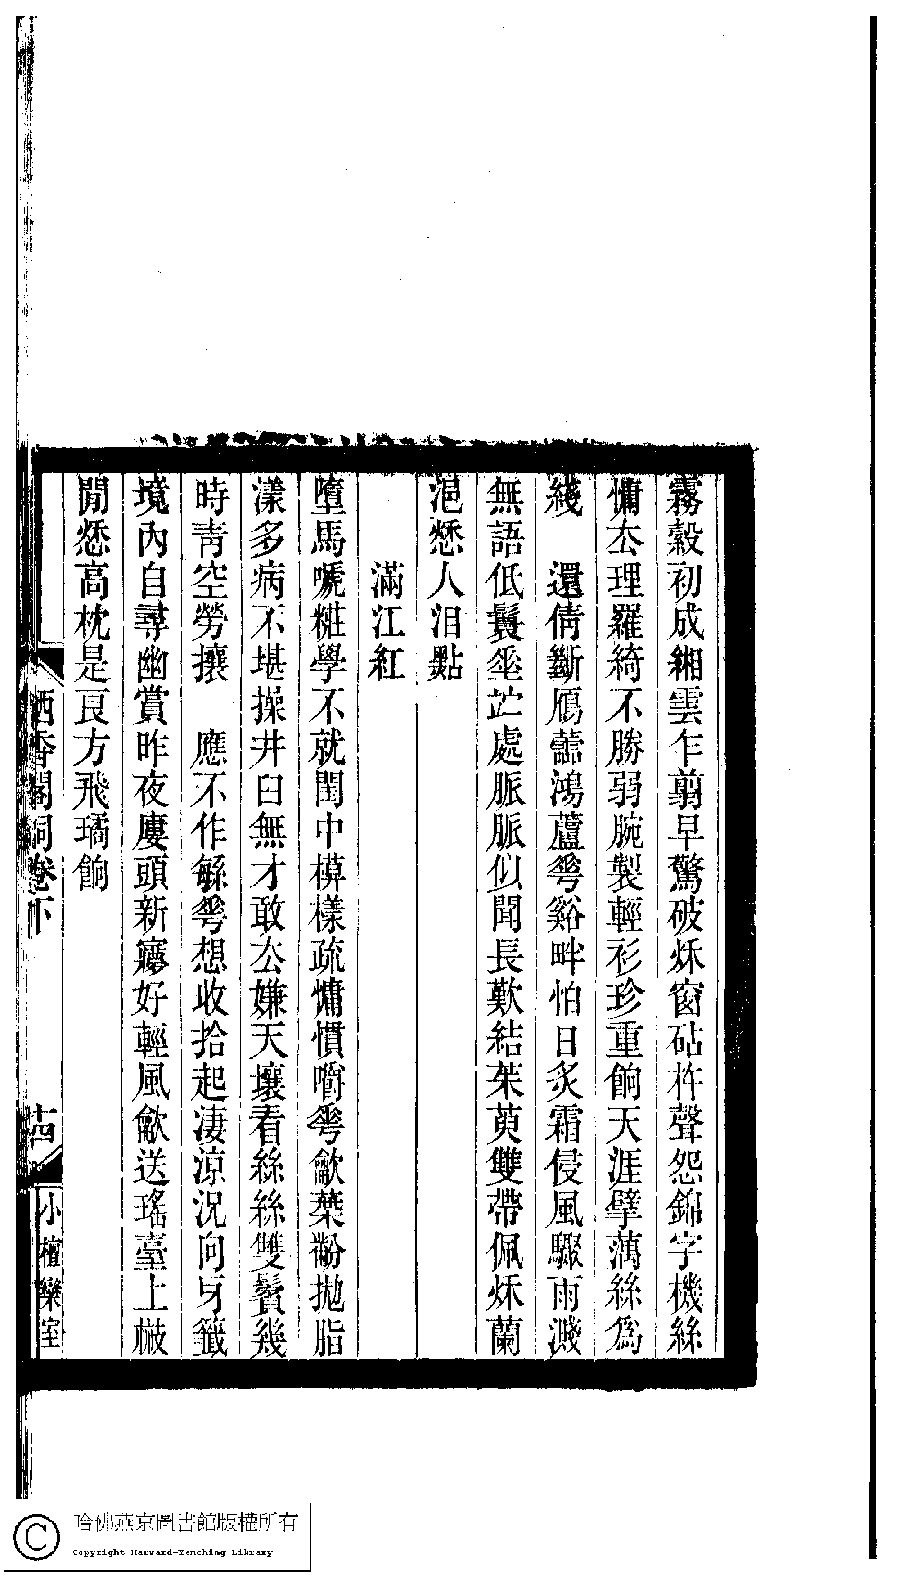 霧縠初成緗雲乍翦早驚破秌窗砧杵聲怨錦字機絲
慵厺理羅綺不勝弱腕製輕衫珍重餉天涯擘蒳絲爲
綫　還倩斷鴈蘦鴻蘆蕚谿畔怕日炙霜侵風驟雨濺
無語低鬟坙𦬆處脈脈似聞長歎結茱萸雙帶佩秌蘭
浥愁人泪點
滿江紅
墮馬嗁糚學不就閨中模樣疏慵慣嚼蕚龡蘂黺拋脂
漾多病不堪操井臼無才敢厺嫌天壤看絲絲雙鬢幾
時靑空勞攘　應不作緐蕚想收拾起淒涼況向身籤
境內自尋幽賞昨夜廔頭新寱好輕風龡送瑤臺上檝
閒愁高枕是良方飛璚餉
洒香閣詞卷下
十四
小檀欒室
哈佛燕京圖書館版權所有
Copyright Harvard-Yenching Library